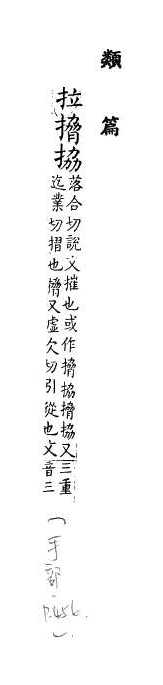 類篇
拉㩉拹落合切說文摧也或作㩉拹㩉拹又
迄業切摺也㩉又虛欠切引從也文三重
音三
(手部.
P.456.)